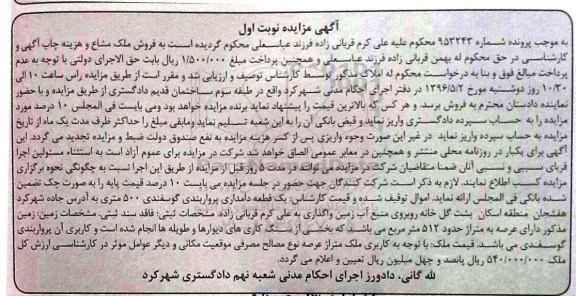 آگهی مزایده نوبت اول
به موجب پرونده شماره ۹۵۳۲۴۳ محکوم علیه علی کرم قربانی زاده فرزند عباسعلی محکوم گردیده است به فروش ملک مشاع و هزینه چاپ آگهی و
کارشناسی در حق محکوم له بهمن قربانی زاده فرزند عباسعلی و همچنین پرداخت مبلغ ۱/۵۰۰/۰۰۰ ریال بابت حق الاجرای دولتی با توجه به عدم
پرداخت مبالغ فوق و بنا به درخواست محکوم له املاک مذکور توسط کارشناس توصیف و ارزیابی شد و مقرر است از طریق مزایده راس ساعت ۱۰ الی
۱۰/۳۰ روز دوشنبه مورخ ۱۳۹۶/۵/۲ در دفتر اجرای احکام مدنی شهرکرد واقع در طبقه سوم ساختمان قدیم دادگستری از طریق مزایده و با حضور
نماینده دادستان محترم به فروش برسد. و هر کس که بالاترین قیمت را پیشنهاد نماید برنده مزایده خواهد بود ومی بایست فی المجلس ۱۰ درصد مورد
مزایده را به حساب سپرده دادگستری واریز نماید و قبض بانکی آن را به این شعبه تسلیم نماید ومابقی مبلغ را حداکثر ظرف مدت یک ماه از تاریخ
مزایده به حساب سپرده واریز نماید در غیر این صورت وجوه واریزی پس از کسر هزینه مزایده به نفع صندوق دولت ضبط و مزایده تجدید می گردد. این
آگهی برای یکبار در روزنامه محلی منتشر و همچنین در معابر عمومی الصاق خواهد شد شرکت در مزایده برای عموم آزاد است به استثناء مسئولین اجرا
قربای سببی و نسبی آنان ضمنا متقاضیان شرکت در مزایده می توانند در مدت ۵ روز قبل از مزایده از طریق این اجرا نسبت به چگونگی نحوه برگزاری
مزایده کسب اطلاع نمایند. لازم به ذکر است شرکت کنندگان جهت حضور در جلسه مزایده می بایست ۱۰ درصد قیمت پایه را به صورت چک تضمین
شده بانکی فی المجلس ارائه نماید. اموال توقیف شده و قیمت کارشناس: یک قطعه دامداری پرواربندی گوسفندی ۵۰۰ متری به آدرس جاده شهرکرد
هفشجان منطقه اسکان پشت گل خانه روبروی منبع آب زمین واگذاری به علی کرم قربانی زاده مشخصات ثبتی: فاقد سند ثبتی. مشخصات زمین: زمین
مذکور دارای عرصه به متراژ حدود ۵۱۲ متر مربع می باشد که بخشی از سنگ کاری های دیوارها و طویله ها انجام شده است و کاربری آن پرواربندی
گوسفندی می باشد. قیمت ملک: با توجه به کاربری ملک متراژ عرصه نوع مصالح مصرفی موقعیت مکانی و دیگر عوامل موثر در کارشناسی ارزش کل
ملک ۵۴۰/۰۰۰/۰۰۰ ریال پانصد و چهل میلیون ریال تعیین و اعلام می گردد.
لله گانی، دادورز اجرای احکام مدنی شعبه نهم دادگستری شهرکرد